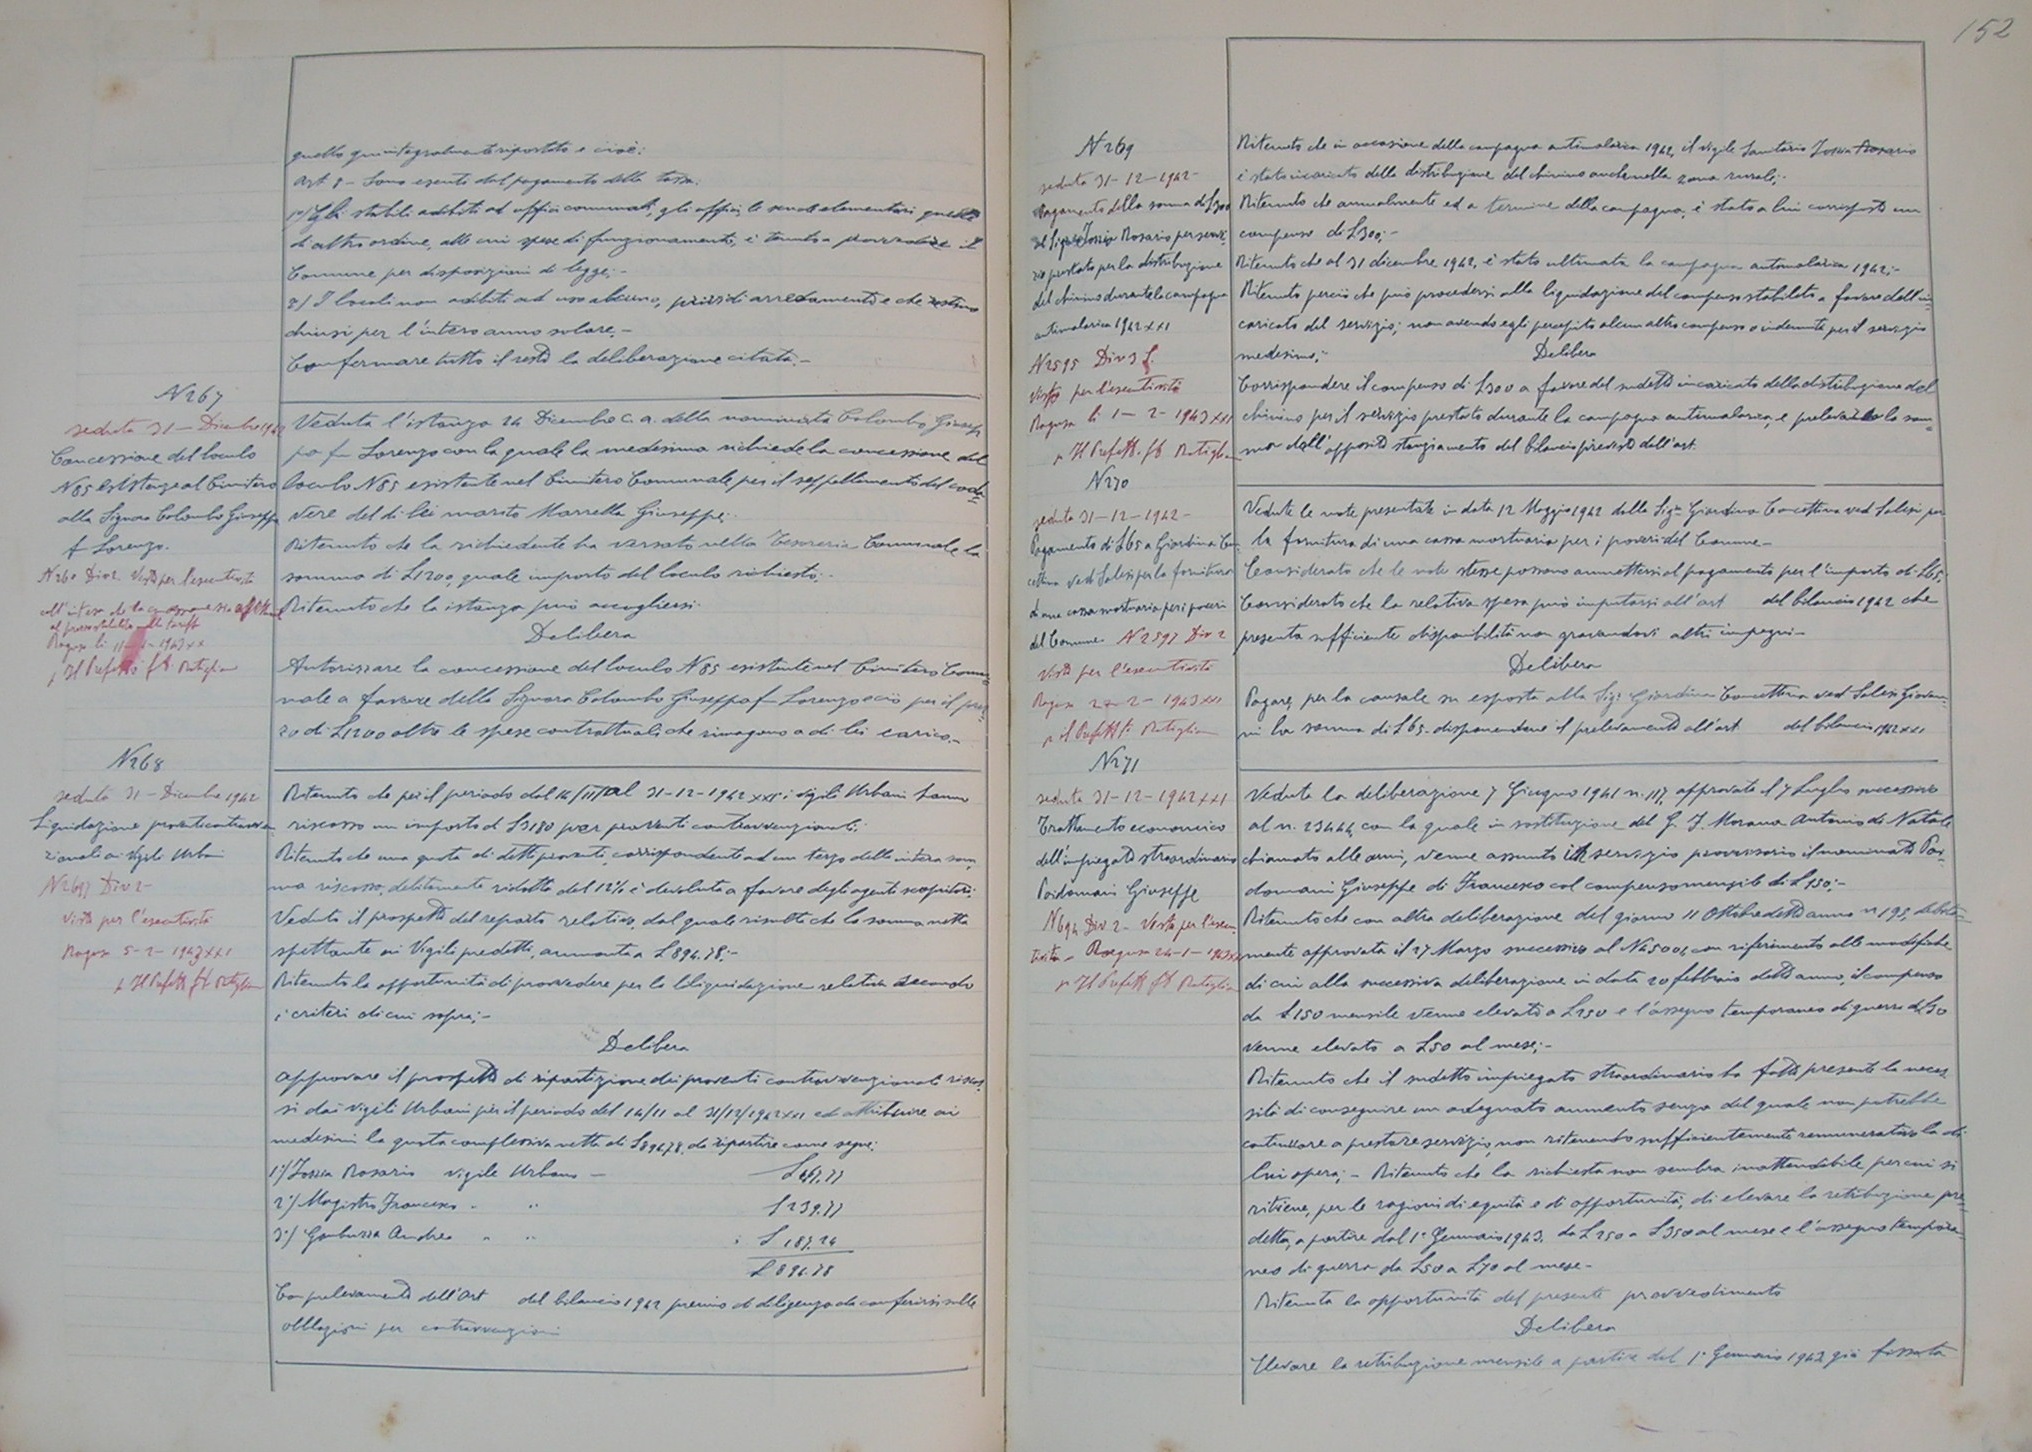 quello qui integralmente riportato e cioè:
Art 8 - Sono esenti dal pagamento della tassa:
1°/ Gli stabili adibiti ad uffici comunali, gli uffici, le scuole elementari quelle
di altro ordine, alle cui spese di funzionamento, è tenuto a provvedere il
Comune per disposizioni di legge;-
2/ I locali non adibiti ad uso alcuno, privi di arredamento e che restino
chiusi per l'intero anno solare.-
Confermare tutto il resto la deliberazione citata.-
N 267
seduta 31 - Dicembre 1942
Concessione del loculo
N 85 esistenze al Cimitero
alla Signora Colombo Giuseppa
f Lorenzo.
N 260 Div 2. Visto per l'esecutività
coll'intesa che la concessione sia
al prezzo stabilito tariffa
Ragusa li 11 1943 XX
p Il Prefetto
Veduta l'istanza 24 Dicembre c. a. della nominata Colombo Giusep
pa fu Lorenzo con la quale la medesima richiede la concessione del
loculo N 85 esistente nel Cimitero Comunale per il seppellimento del cada-
vere del di lei marito Marrella Giuseppe;
Ritenuto che la richiedente ha versato nella Tesoreria Comunale la
somma di L 1200, quale importo del loculo richiesto;
Ritenuto che la istanza può accogliersi.
Delibera
Autorizzare la concessione del loculo N 85 esistente nel Cimitero Comu-
nale a favore della Signora Colombo Giuseppa f Lorenzo e ciò per il prez-
zo di L 1200 oltre le spese contrattuali che rimagono a di lei carico.-
N 268
seduta 31 - Dicembre 1942
Liquidazione proventi contravven
zionali ai Vigili Urbani
N 2697 Div 2-
Visto per l'esecutività
Ragusa 5-2-1943 XXI
p Il Prefetto
Ritenuto che per il periodo dal 14/11/ al 31-12-1942 XXI i vigili Urbani hanno
riscosso un importo di L 3180 per proventi contravvenzionali;
Ritenuto che una quota di detti proventi, corrispondente ad un terzo della intera som
ma riscossa, debitamente ridotta del 12% è devoluta a favore degli agenti scopritori;
Veduto il prospetto del reparto relativo, dal quale risulta che la somma netta
spettante ai Vigili predetti, ammonta a L 894.78;-
Ritenuto la opportunità di provvedere per la liliquidazione relativa secondo
i criteri di cui sopra;-
Delibera
approvare il prospetto di ripartizione dei proventi contravvenzionali riscos
si dai vigili Urbani per il periodo del 14/11 al 31/12/1942 XXI ed attribuire ai
medesimi la quota complessiva netta di L 894.78, da ripartire come segue:
1°/ Rosario vigile Urbano - L 467.77
2°/ Magistro Francesco " " L 239.77
3°/ Garbuzza Andrea " " : L 187.24
L 894.78
Con prelevamento dell'Art del bilancio 1942 premio di diligenza da conferirsi sulle
oblazioni per contravvenzioni
152
N 269
seduta 31-12-1942-
Pagamento della somma di L 300
al Rosario per servi-
zio prestato per la distribuzione
del chinino durante la campagna
antimalarica 1942 XXI
N 2595 Div 3
Visto per l'esecutività
Ragusa li 1-2-1943 XXI
p Il Prefetto
Ritenuto che in occasione della campagna antimalarica 1942, il vigile Sanitario Rosario
è stato incaricato della distribuzione del chinino anche nella zona rurale;-
Ritenuto che annualmente ed a termine della campagna, è stato a lui corrisposto un
compenso di L 300;-
Ritenuto che al 31 dicembre 1942, è stata ultimata la campagna antimalarica 1942;-
Ritenuto perciò che può procedersi alla liquidazione del compenso stabilito a favore dell'in-
caricato del servizio; non avendo egli percepito alcun altro compenso o indennità per il servizio
medesimo;-
Delibera
Corrispondere il compenso di L 300 a favore del sudetto incaricato della distribuzione del
chinino per il servizio prestato durante la campagna antimalarica, e prelevando la som-
ma dall'apposito stanziamento del bilancio previsto dell'art.
N 270
seduta 31-12-1942-
Pagamento di L 65 a Giordina Con-
cettina ved Salesi per la fornitura
di una cassa mortuaria per i poveri
del Comune- N 2597 Div 2
Visto per l'esecutività
Ragusa 2-2-1943 XXI
p il Prefetto
Vedute le note presentate in data 12 Maggio 1942 dalla Sig.ra Giordina Concettina ved Salesi, per
la fornitura di una cassa mortuaria per i poveri del Comune-
Considerato che le note stesse possono ammettersi al pagamento per l'importo di L 65;
Considerato che la relativa spesa può imputarsi all'art del bilancio 1942 che
presenta sufficiente disponibilità non gravandovi altri impegni-
Delibera
Pagare, per la causale su esposta alla Sig.ra Giordina Concettina ved Salesi Giovan-
ni la somma di L 65- disponendone il prelevamento all'art del bilancio 1942 XXI
N 271
seduta 31-12-1942 XXI
Trattamento economico
dell'impiegato straordinario
Poidomani Giuseppe
N 694 Div 2- Visto per l'esecu
tività - Ragusa 24-1-1943 XXI
p Il Prefetto
Veduta la deliberazione 7 Giugno 1941 n. 117, approvata il 7 Luglio successivo
al n. 23444, con la quale in sostituzione del G. I. Morana Antonio di Natale
chiamato alle armi, venne assunto in servizio provvisorio il nominato Poi-
domani Giuseppe di Francesco col compenso mensile di L 150;-
Ritenuto che con altra deliberazione del giorno 11 Ottobre detto anno n 193, debita-
mente approvata il 27 Marzo successivo al N 4500, con riferimento alle modifiche
di cui alla successiva deliberazione in data 20 febbraio detto anno, il compenso
da L 150 mensile venne elevato a L 250 e l'assegno temporaneo di guerra di L 30
venne elevato a L 50 al mese;-
Ritenuto che il sudetto impiegato straordinario ha fatto presente la neces
sità di conseguire un adeguato aumento senza del quale non potrebbe
continuare a prestare servizio, non ritenendo sufficientemente remunerativo la di
lui opera;- Ritenuto che la richiesta non sembra inattendibile per cui si
ritiene, per le ragioni di equità e di opportunità, di elevare la retribuzione pre-
detta, a partire dal 1° Gennaio 1943, da L 250 a L 350 al mese e l'assegno tempora-
neo di guerra da L 50 a L 70 al mese-
Ritenuta la opportunità del presente provvedimento
Delibera
Elevare la retribuzione mensile a partire dal 1° Gennaio 1943 già fissata